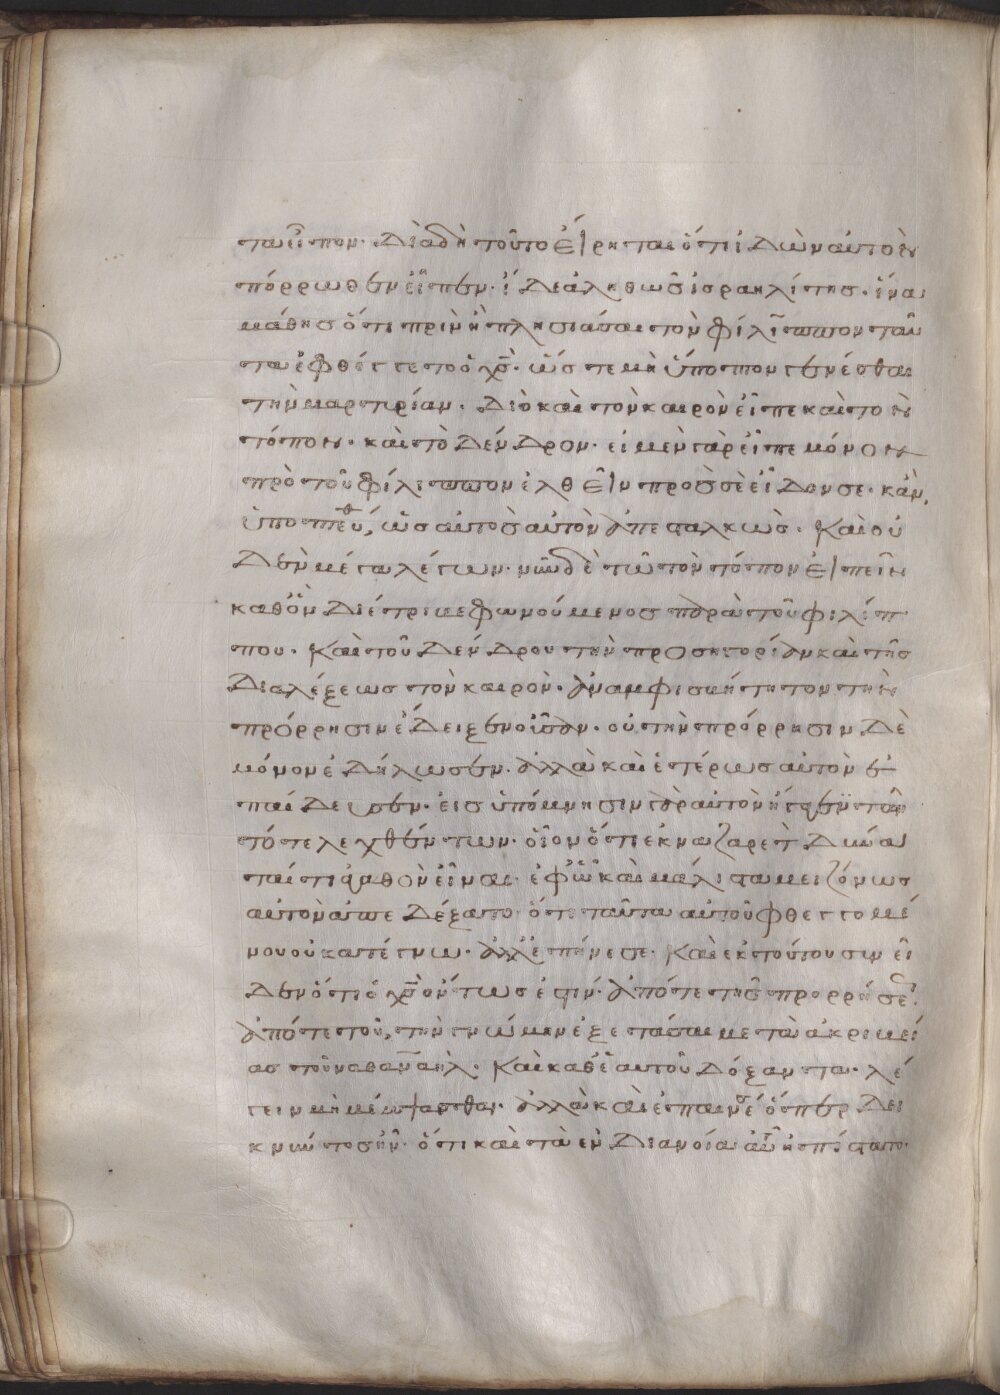 ταῦ εἶπον· Διὰ δὴ τοῦτο εἴρηται ὅτι ἰδὼν αὐτὸν
πόρρωθεν εἶπεν· ἴδε ἀληθῶς ἰσραηλίτης· ἵνα
μάθης ὅτι πρὶν ἢ πλησιάσαι τὸν φίλιππον ταῦ
τα ἐφθέγγετο ὁ χς· ὥστε μὴ ὑποπτον γενέσθαι
τὴν μαρτυρίαν· Διὸ καὶ τὸν καιρὸν εἶπε καὶ τὸν
τόπον· καὶ τὸ δένδρον· εἰ μὲν γὰρ εἶπε μόνον
πρὸ τοῦ φίλιππον ἐλθεῖν πρὸς σὲ εἶδον σε· κἂν
ὑποπτεύθη, ὡς αὐτὸς αὐτὸν ἀπεσταλκὼς· Καὶ οὐ
δὲν μέγα λέγων· νῦν δὲ τῶ τὸν τόπον εἰπεῖν
καθ' ὃν διέτριβε φωνούμενος παρὰ τοῦ φιλίπ
που· Καὶ τοῦ δένδρου τὴν προσηγορίαν καὶ τῆς
διαλέξεως τὸν καιρὸν· ἀναμφισβήτητον τὴν
πρόρρησιν ἔδειξεν οὖσαν· οὐ τὴν πρόρρησιν δὲ
μόνον ἐδήλωσεν· ἀλλὰ καὶ ἑτέρως αὐτὸν ἐ
παίδευσεν· εἰς ὑπόμνησιν γὰρ αὐτὸν ἤγαγεν τῶν
τότε λεχθέντων· οἷον ὅτι ἐκ ναζαρετ δύνα
ταί τι ἀγαθὸν εἶναι· ἐφ' ὧ καὶ μάλιστα μειζόνως
αὐτὸν ἀπεδέξατο ὅτι ταῦτα αὐτοῦ φθεγγομέ
νου οὐ κατέγνω· ἀλλ' ἐπήνεσε· Καὶ ἐκ τούτου συνεῖ
δεν ὅτι ὁ χς ὄντως ἐστίν· ἀπό τε τῆς προρρήσεως·
ἀπό τε τοῦ, τὴν γνώμην ἐξετάσαι μετὰ ἀκριβεί
ας τοῦ ναθαναήλ· Καὶ καθ' ἑαυτοῦ δόξαντα· λέ
γειν μὴ μέμψασθαι· ἀλλὰ καὶ ἐπαινέσαι ὅπερ δει
κνύντος ἦν· ὅτι καὶ τὰ ἐν διανοία αὐτοῦ ἠπίστατο·